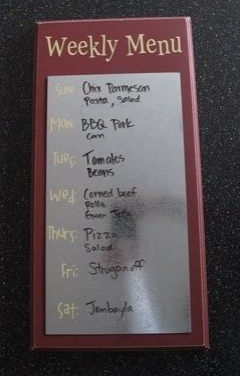 Weekly Menu
Sun: Chix Parmesan
Pasta, Salad
Mon: BBQ Pork
Corn
Tues: Tamales
Beans
Wed: Corned beef
Rolls
Green
Thurs: Pizza
Salad
Fri: Stroganoff
Sat: Jambayla